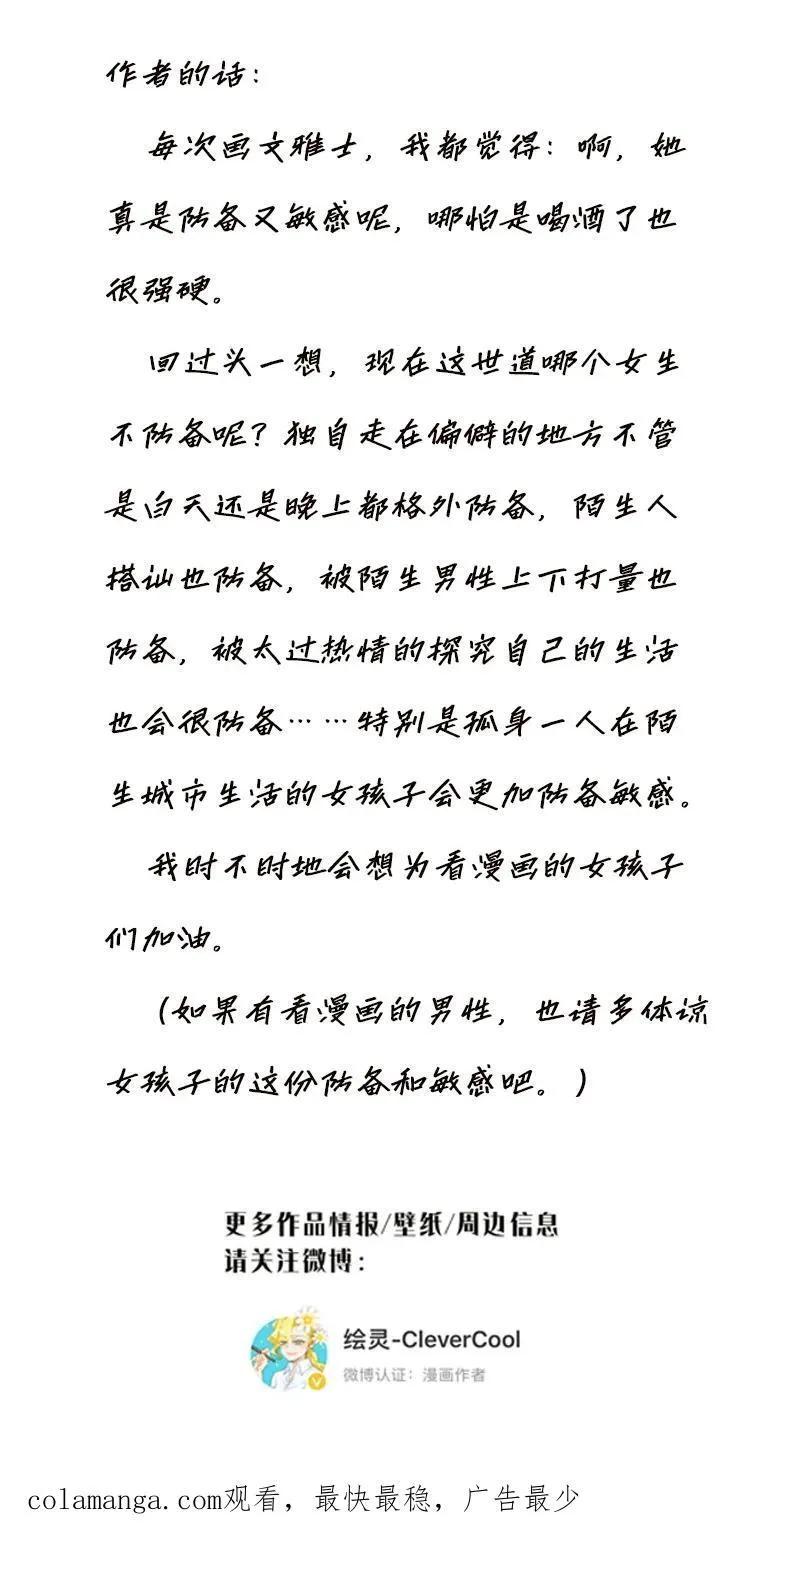 作者的话：
每次画文雅士，我都觉得：啊，她
真是防备又敏感呢，哪怕是喝酒了也
很强硬。
回过头一想，现在这世道哪个女生
不防备呢？独自走在偏僻的地方不管
是白天还是晚上都格外防备，陌生人
搭讪也防备，被陌生男性上下打量也
防备，被太过热情的探究自己的生活
也会很防备……特别是孤身一人在陌
生城市生活的女孩子会更加防备敏感。
我时不时地会想为看漫画的女孩子
们加油。
（如果有看漫画的男性，也请多体谅
女孩子的这份防备和敏感吧。）
更多作品情报/壁纸/周边信息
请关注微博：
绘灵-CleverCool
微博认证：漫画作者
colamanga.com观看，最快最稳，广告最少